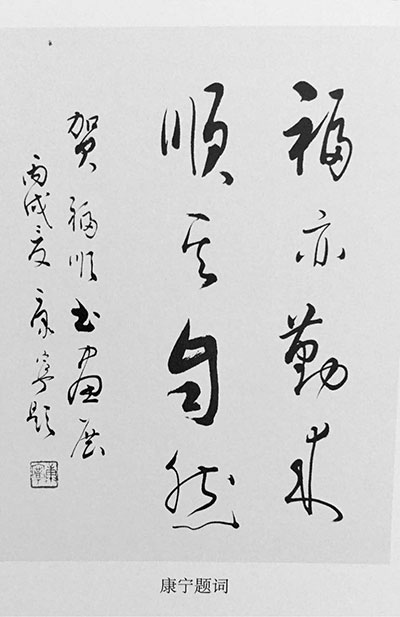 福亦勤来
順其自然
贺福顺书画展
丙戌夏康宁题
康宁题词